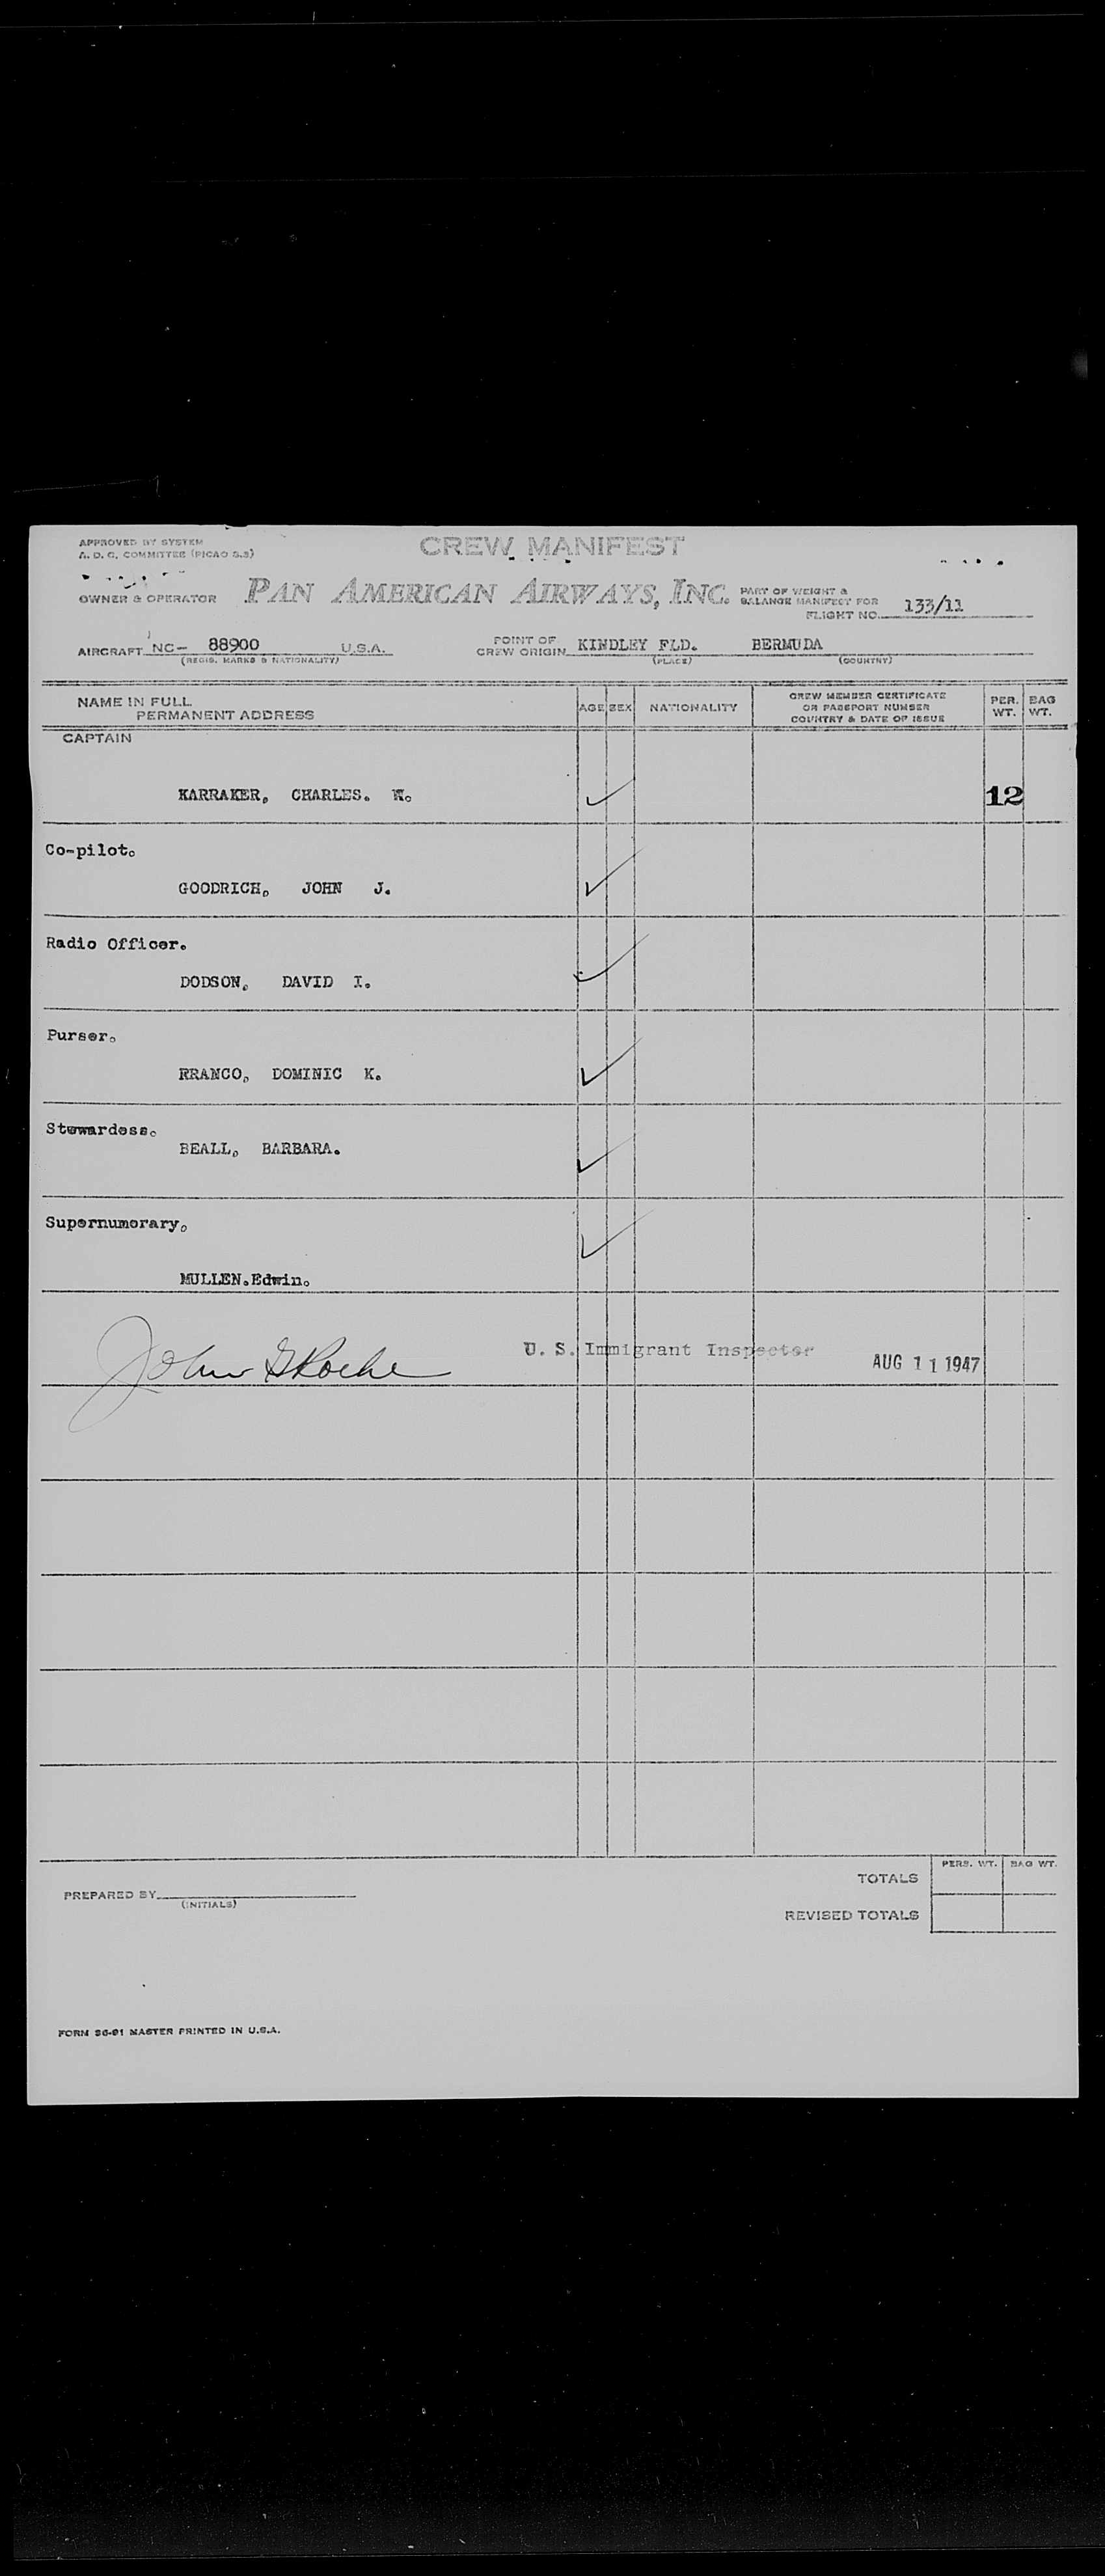 APPROVED BY SYSTEM
A. D. C. COMMITTEE (PICAO S.S)
CREW MANIFEST
OWNER & OPERATOR PAN AMERICAN AIRWAYS, INC.
PART OF WEIGHT &
BALANCE MANIFEST FOR
FLIGHT NO. 133/11
AIRCRAFT NC- 88900 U.S.A.
(REGIS. MARKS & NATIONALITY)
POINT OF
CREW ORIGIN KINDLEY FLD. BERMUDA
(PLACE) (COUNTRY)
NAME IN FULL
PERMANENT ADDRESS
AGE SEX NATIONALITY
CREW MEMBER CERTIFICATE
OR PASSPORT NUMBER
COUNTRY & DATE OF ISSUE
PER. WT.
BAG WT.
CAPTAIN
KARRAKER, CHARLES. W.
12
Co-pilot.
GOODRICH, JOHN J.
Radio Officer.
DODSON, DAVID I.
Purser.
FRANCO, DOMINIC K.
Stewardess.
BEALL, BARBARA.
Supernumerary.
MULLEN.Edwin.
John G Roche
U. S. Immigrant Inspector
AUG 11 1947
PERS. WT. BAG WT.
TOTALS
PREPARED BY
(INITIALS)
REVISED TOTALS
FORM 96-91 MASTER PRINTED IN U.S.A.